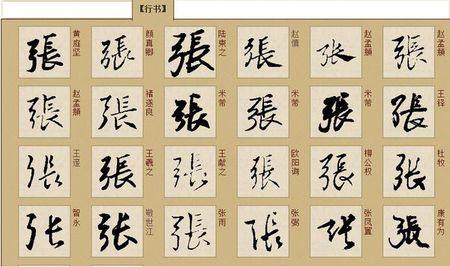 【行书】
張 黄庭坚
張 颜真卿
張 陆柬之
張
張 赵孟頫
張 赵孟頫
張 赵孟頫
張 褚遂良
張 米芾
張 米芾
張 米芾
張 王铎
張
張 王羲之
張 王献之
張 欧阳询
張 柳公权
張 杜牧
張 智永
張 敬世江
張 张雨
張 张弼
張
張 康有为